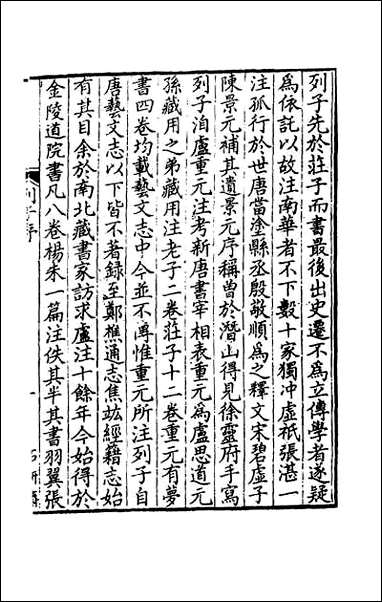 列子先於莊子而書最後出史遷不爲立傳學者遂疑
爲依託以故注南華者不下數十家獨冲虛祇張湛一
注孤行於世唐當塗縣丞殷敬順爲之釋文宋碧虛子
陳景元補其遺景元序稱曾於潛山得見徐靈府手寫
列子洎盧重元注考新唐書宰相表重元爲盧思道元
孫藏用之弟藏用注老子二卷莊子十二卷重元有夢
書四卷均載藝文志中今並不傳惟重元所注列子自
唐藝文志以下皆不著録至鄭樵通志焦竑經籍志始
有其目余於南北藏書家訪求盧注十餘年今始得於
金陵道院書凡八卷楊朱一篇注佚其半其書羽翼張
列子序
一
石研齋